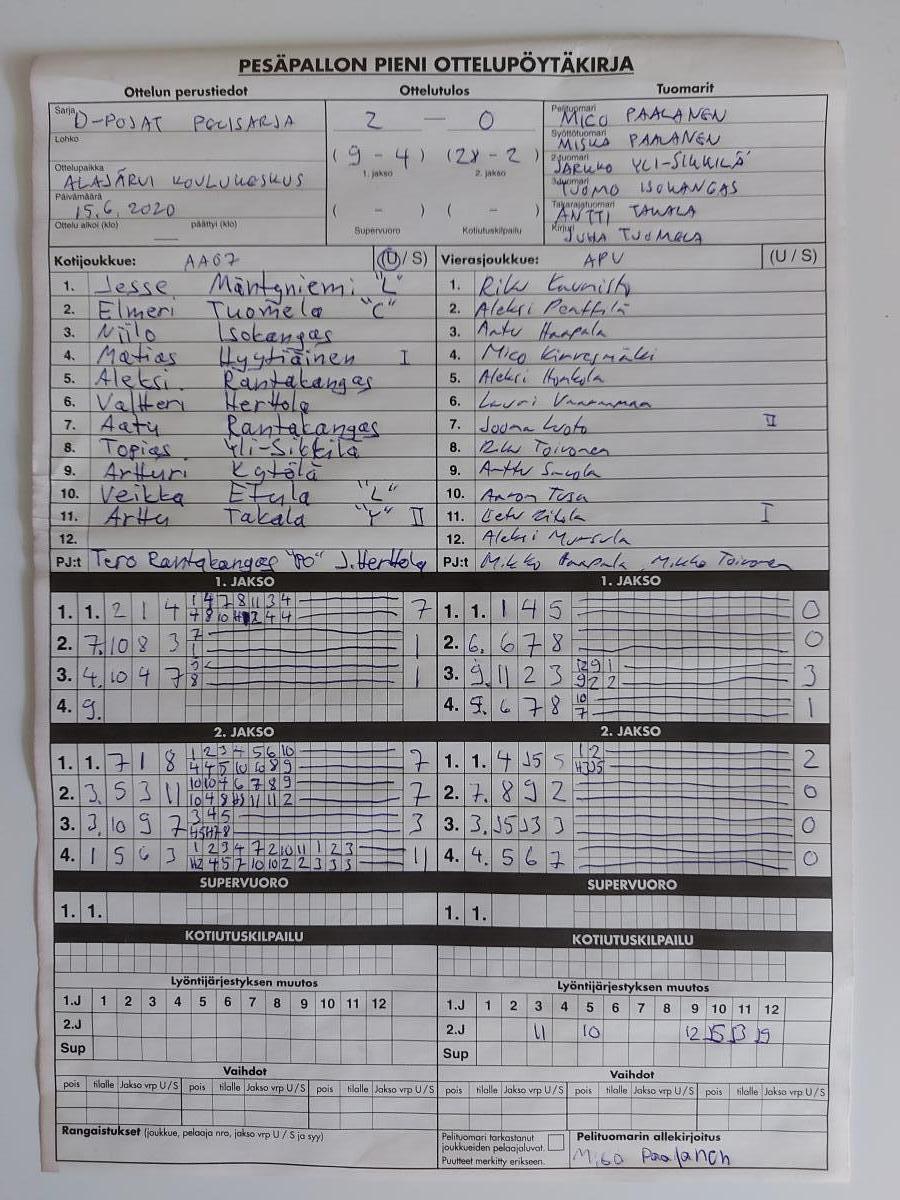 PESÄPALLON PIENI OTTELUPÖYTÄKIRJA
Ottelun perustiedot Ottelutulos Tuomarit
Sarja D-POJAT POLISARJA 2 — 0 Pelituomari MICO PAALANEN
Lohko Syöttötuomari MISKA PAALANEN
(9 - 4) (28 - 2) 2-tuomari JARKKO YLI-SIKKILÄ
Ottelupaikka ALAJÄRVI KOULUKESKUS 1. jakso 2. jakso 3-tuomari TUOMO ISOKANGAS
Päivämäärä 15.6.2020 ( - ) ( - ) Takarajatuomari ANTTI TAKALA
Ottelu alkoi (klo) — päättyi (klo) Supervuoro Kotiutuskilpailu Kirjuri JUHA TUOMELA
Kotijoukkue: AA67 (U/S) Vierasjoukkue: APV (U/S)
1. Jesse Mäntyniemi "L" 1. Riku
2. Elmeri Tuomela "C" 2. Aleksi Penttilä
3. Niilo Isokangas 3. Aatu Haapala
4. Matias Hyytiäinen I 4. Mico Kinnesmäki
5. Aleksi Rantakangas 5. Aleksi Honkola
6. Valtteri Herttola 6. Lauri
7. Aatu Rantakangas 7. Joona Luoto II
8. Topias Yli-Sikkilä 8. Riku Toivonen
9. Artturi Kytölä 9. Anttu
10. Veikka Etula "L" 10. Aaron
11. Arttu Takala "Y" II 11. Eetu I
12. 12. Aleksi Mursula
PJ:t Tero Rantakangas "PO" J. Herttola PJ:t Mikko Haapala, Mikko Toivonen
1. JAKSO 1. JAKSO
1. 1. 2 1 4 1 4 7 8 11 3 4 7 1. 1. 1 4 5 0
4 8 10 4 4
2. 7. 10 8 3 7 1 1 2. 6. 6 7 8 0
3. 4. 10 4 7 8 1 3. 9. 11 2 3 12 9 1 3
9 2 2
4. 9. 4. 6 7 8 10 1
7
2. JAKSO 2. JAKSO
1. 1. 7 1 8 1 2 3 4 5 6 10 7 1. 1. 4 15 5 1 2 2
4 4 5 10 10 8 9
2. 3. 5 3 11 10 10 4 6 7 8 9 7 2. 7. 8 9 2 0
10 4 8 11 11 2
3. 3. 10 9 7 3 4 5 3 3. 3. 15 13 3 0
4. 1 5 6 3 1 2 3 4 7 2 10 11 1 2 3 11 4. 4. 5 6 7 0
4 5 7 10 10 2 2 3 3 3
SUPERVUORO SUPERVUORO
1. 1. 1. 1.
KOTIUTUSKILPAILU KOTIUTUSKILPAILU
Lyöntijärjestyksen muutos Lyöntijärjestyksen muutos
1.J 1 2 3 4 5 6 7 8 9 10 11 12 1.J 1 2 3 4 5 6 7 8 9 10 11 12
2.J 2.J 11 10 12 15 13 19
Sup Sup
Vaihdot Vaihdot
pois tilalle Jakso vrp U/S pois tilalle Jakso vrp U/S pois tilalle Jakso vrp U/S pois tilalle Jakso vrp U/S pois tilalle Jakso vrp U/S pois tilalle Jakso vrp U/S
Rangaistukset (joukkue, pelaaja nro, jakso vrp U / S ja syy) Pelituomari tarkastanut joukkueiden pelaajaluvat. Pelituomarin allekirjoitus
Puutteet merkitty erikseen. Mico Paalanen